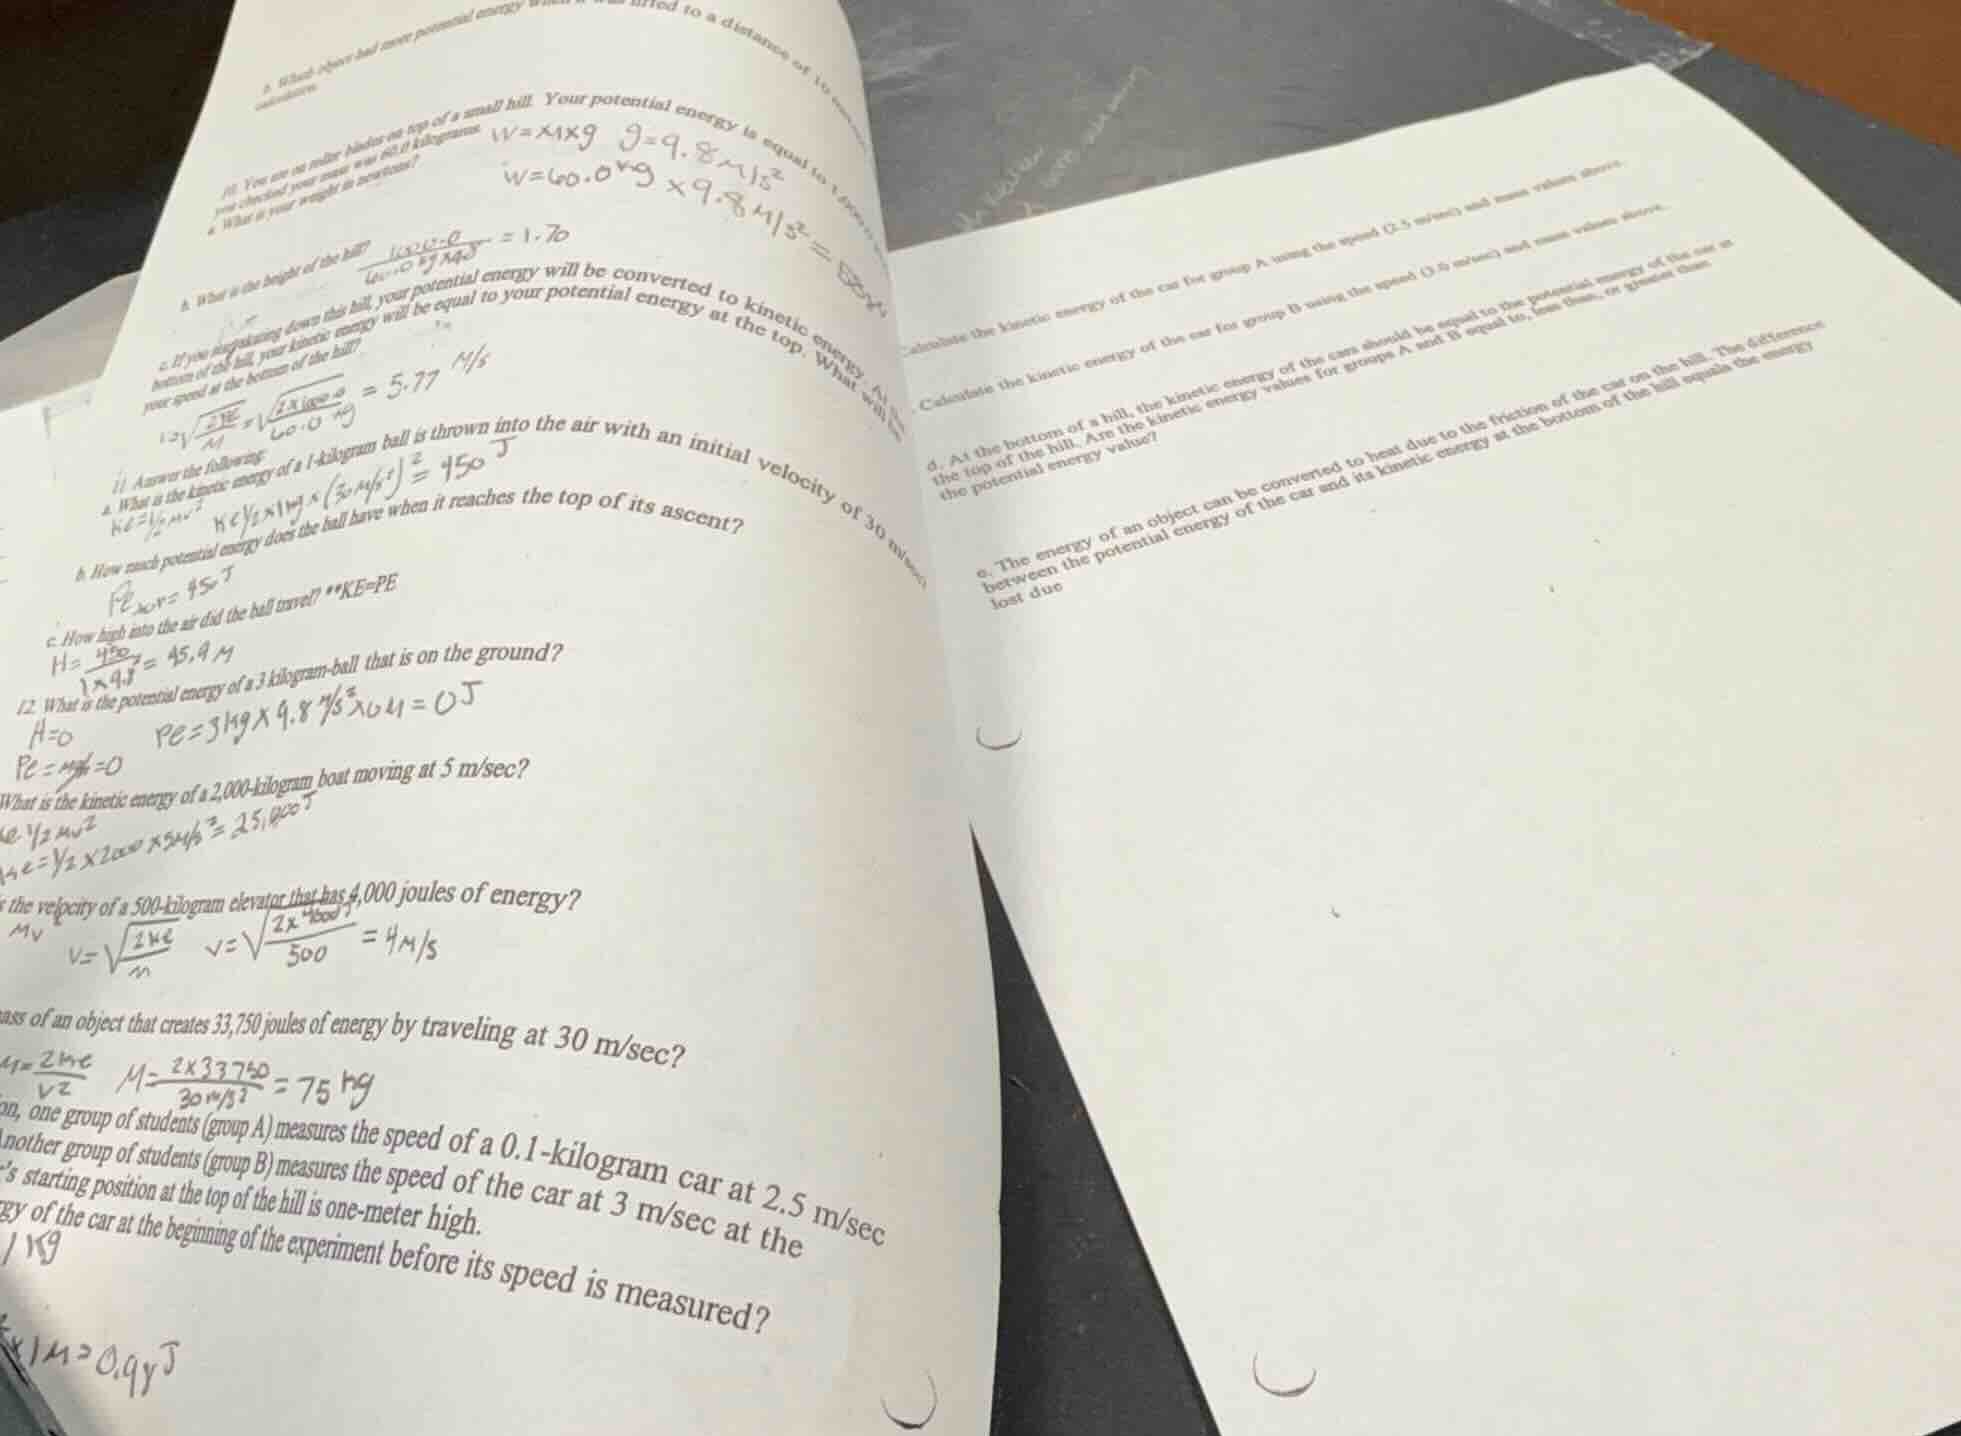 b. Which object had more potential energy when it was lifted to a distance of 10
calculation.
10. You are on roller blades on top of a small hill. Your potential energy is equal to 1,000.0
you checked your mass was 60.0 kilograms.
a. What is your weight in newtons?
W=M×g g=9.8M/s²
W=60.0kg ×9.8M/s²=
b. What is the height of the hill?
1000.0
60.0 kg×9.8 =1.70
c. If you start skating down this hill, your potential energy will be converted to kinetic energy. At the
bottom of the hill, your kinetic energy will be equal to your potential energy at the top. What will be
your speed at the bottom of the hill?
√2KE/M=√2×1000.0/60.0 kg = 5.77 M/s
11. Answer the following:
a. What is the kinetic energy of a 1-kilogram ball is thrown into the air with an initial velocity of 30 m/sec?
Ke=1/2 Mv² Ke1/2×1kg×(30M/s²)²=450 J
b. How much potential energy does the ball have when it reaches the top of its ascent?
Pe = 450 J
c. How high into the air did the ball travel? **KE=PE
H= 450/1×9.8 = 45.9 M
12. What is the potential energy of a 3 kilogram-ball that is on the ground?
H=0 Pe=3kg×9.8 M/s²×0M=0J
Pe=mgh=0
What is the kinetic energy of a 2,000-kilogram boat moving at 5 m/sec?
Ke=1/2 Mv²
Ke=1/2×2000×5M/s²=25,000 J
s the velocity of a 500-kilogram elevator that has 4,000 joules of energy?
Mv V=√2Ke/m V=√2×4000J/500 = 4M/s
ass of an object that creates 33,750 joules of energy by traveling at 30 m/sec?
M=2Ke/V2 M=2×33750/30m/s² = 75 kg
on, one group of students (group A) measures the speed of a 0.1-kilogram car at 2.5 m/sec
Another group of students (group B) measures the speed of the car at 3 m/sec at the
r's starting position at the top of the hill is one-meter high.
rgy of the car at the beginning of the experiment before its speed is measured?
1 Kg
×1M=0.98J
Calculate the kinetic energy of the car for group A using the speed (2.5 m/sec) and mass values above.
. Calculate the kinetic energy of the car for group B using the speed (3.0 m/sec) and mass values above.
d. At the bottom of a hill, the kinetic energy of the cars should be equal to the potential energy of the car at
the top of the hill. Are the kinetic energy values for groups A and B equal to, less than, or greater than
the potential energy value?
e. The energy of an object can be converted to heat due to the friction of the car on the hill. The difference
between the potential energy of the car and its kinetic energy at the bottom of the hill equals the energy
lost due